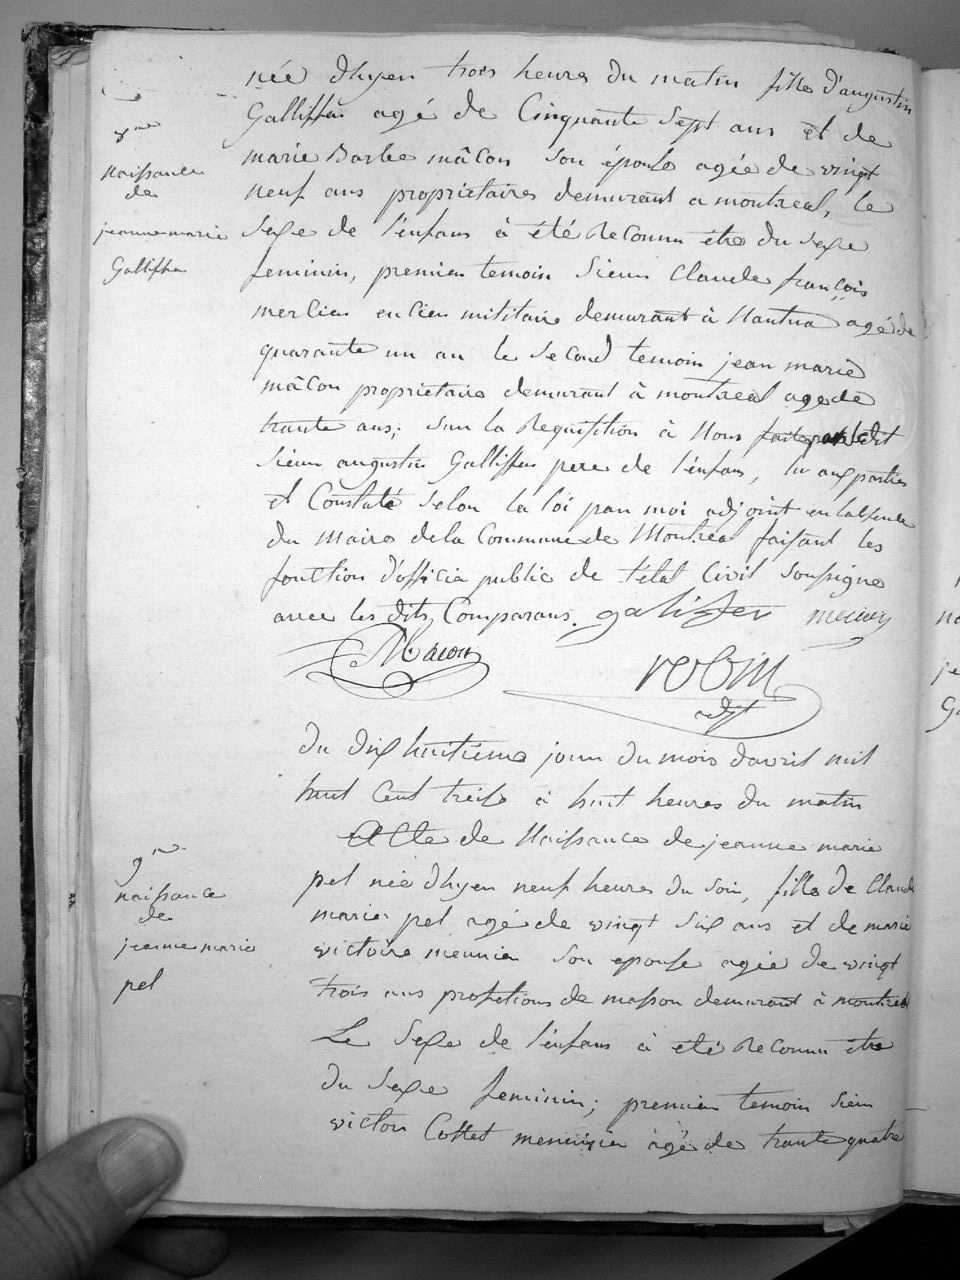 née dhyer trois heures du matin fille d'augustin
Galliffet agé de Cinquante Sept ans et de
marie Barbe mâcon son épouse agée de vingt
neuf ans proprietaires demurant a montreal, le
Sexe de l'enfans à été Reconnu étre du Sexe
feminin, premier temoin Sieur Claude françois
mercier encien militaire demurant à Nantua agé de
quarante un an le Second temoin jean marie
mâcon proprietaire demurant à montreal age de
trante ans; sur la Requisition à Nous faite par ledit
Sieur augustin Galliffet pere de l'enfans, lu aux parties
et Constaté Selon la loi par moi adjoint en l'absence
du Maire de la Commune de Montreal faisant les
fonction d'officié public de l'état Civil Soussigne
avec les dits Comparans. galiffet mercier
Macon
robin
adjt
8me
naissance
de
jeanne marie
Galliffet
du dix huitieme jour du mois davril mil
huit Cent treise à huit heures du matin
Acte de Naissance de jeanne marie
pel née dhyer neuf heures du soir, fille de Claude
marie pel agé de vingt six ans et de marie
victoire meunier son epouse agée de vingt
trois ans profetions de masson demurant à montreal
Le Sexe de l'enfans à été Reconnu étre
du Sexe feminin; premier temoin Sieur
victor Cottet menuisier agé de trante quatre
9me
naissance
de
jeanne marie
pel